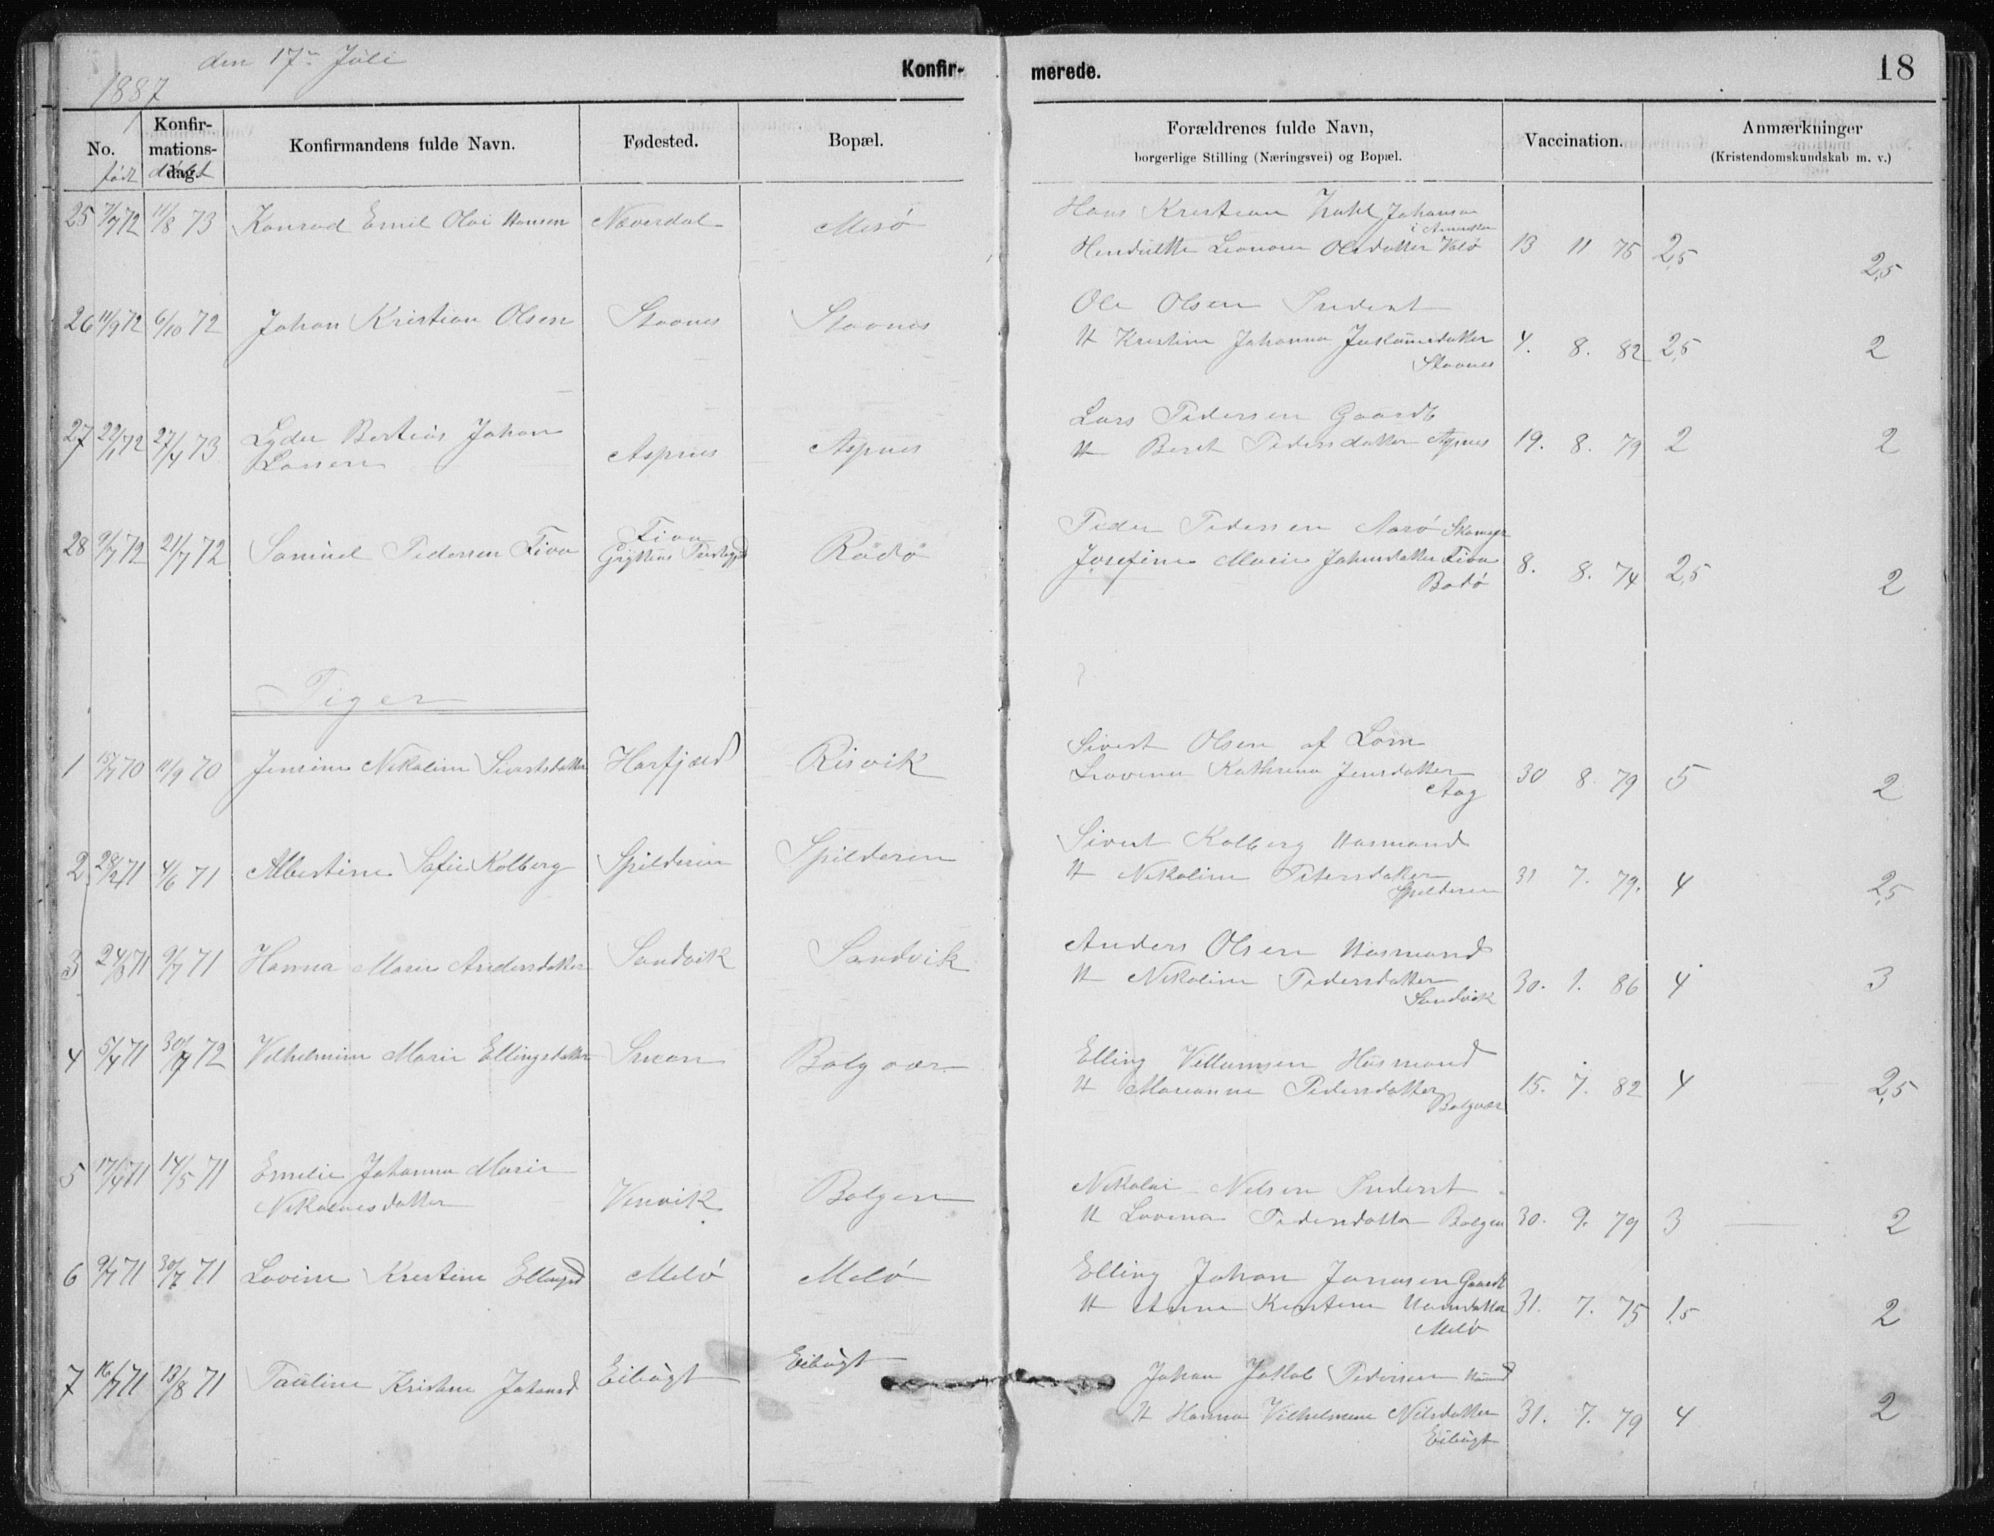 den 17de Juli
1887
Konfir-
merede.
18
No.
født
Konfir-
mations-
dag.
døbt
Konfirmandens fulde Navn.
Fødested.
Bopæl.
Forældrenes fulde Navn,
borgerlige Stilling (Næringsvei) og Bopæl.
Vaccination.
Anmærkninger
(Kristendomskundskab m. v.)
25 7/9 72 11/8 73 Konrad Emil Olai Hansen Næverdal Mesø Hans Kristian Zahl Johansen
i Amerika
Olsdatter Valø 13 11 75 2,5 2,5
26 11/9 72 6/10 72 Johan Kristian Olsen Stavnes Stavnes Ole Olsen Inderst
H Kristine Johanna 4. 8. 82 2,5 2
Stavnes
27 22/11 72 27/4 73 Lyder Bertius Johan
Larsen Aspnes Aspnes Lars Pedersen Gaardb
H Beret Pedersdatter Aspnes 19. 8. 79 2 2
28 9/7 72 21/7 72 Samuel Pedersen Fiva Fiva
Rødø Peder Pedersen Aarø
Josefine Marie Johnsdatter Fiva
Bodø 8. 8. 74 2,5 2
Piger
1 15/7 70 11/9 70 Jensine Nikoline Sivertsdatter Harfjæld Risvik Sivert Olsen af Lom
Lovena Kathrina Jensdatter
Aag 30 8. 79 5 2
2 28/2 71 4/6 71 Albertine Sofie Kolberg Spilderen Spilderen Sivert Kolberg Husmand
H Nikoline Petersdatter
Spilderen 31 7. 79. 4 2,5
3 24/3 71 9/7 71 Hanna Marie Andersdatter Sandvik Sandvik Anders Olsen Husmand
H Nikoline Pedersdatter
Sandvik 30. 1. 86 4 3
4 5/4 71 30/7 72 Vilhelmine Marie Ellingsdatter Bolgvær Elling Villumsen Husmand
H Marianne Pedersdatter
Bolgvær 15. 7. 82 4 2,5
5 17/4 71 14/5 71 Emelie Johanna Marie
Nikolaisdatter Venvik Bolgen Nikolai Nilsen Inderst
H Lovena Pedersdatter Bolgen 30. 9. 79 3 2
6 9/7 71 30/7 71 Lovine Kristine Ellingsd Melø Melø Elling Johan Jonasen Gaardb
H Anne Kirstine Hansdatter
Melø 31. 7. 75 1,5 2
7 16/7 71 13/8 71 Pauline Kristine Johansd Eibugt Eibugt Johan Jakob Pedersen Husmd
H Hanna Vilhelmine Nilsdatter
Eibugt 31. 7. 79 4 2